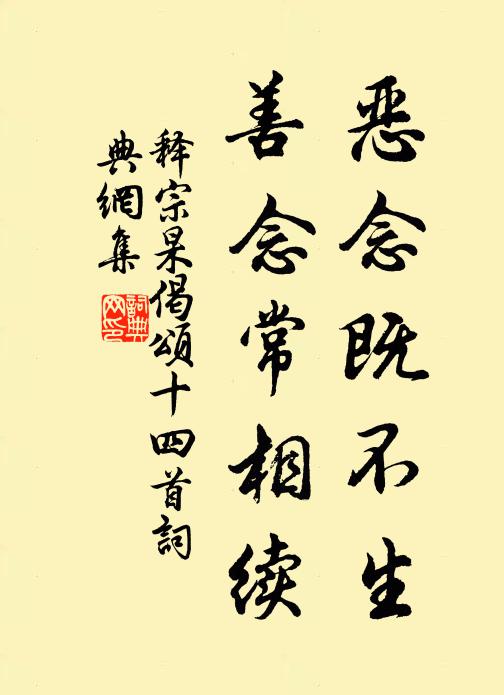 恶念既不生
善念常相续
释宗杲偈頌十四首詞
典網集
詞典网印